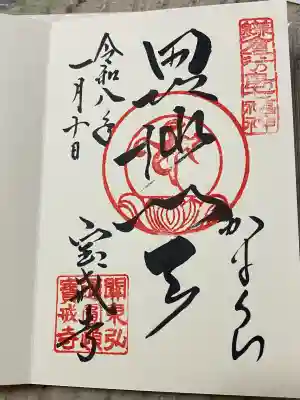 鎌倉江の島
七福神
かまくら
毘沙門天
令和八年
一月十日
宝戒寺
關東弘
圓頓
寶戒寺